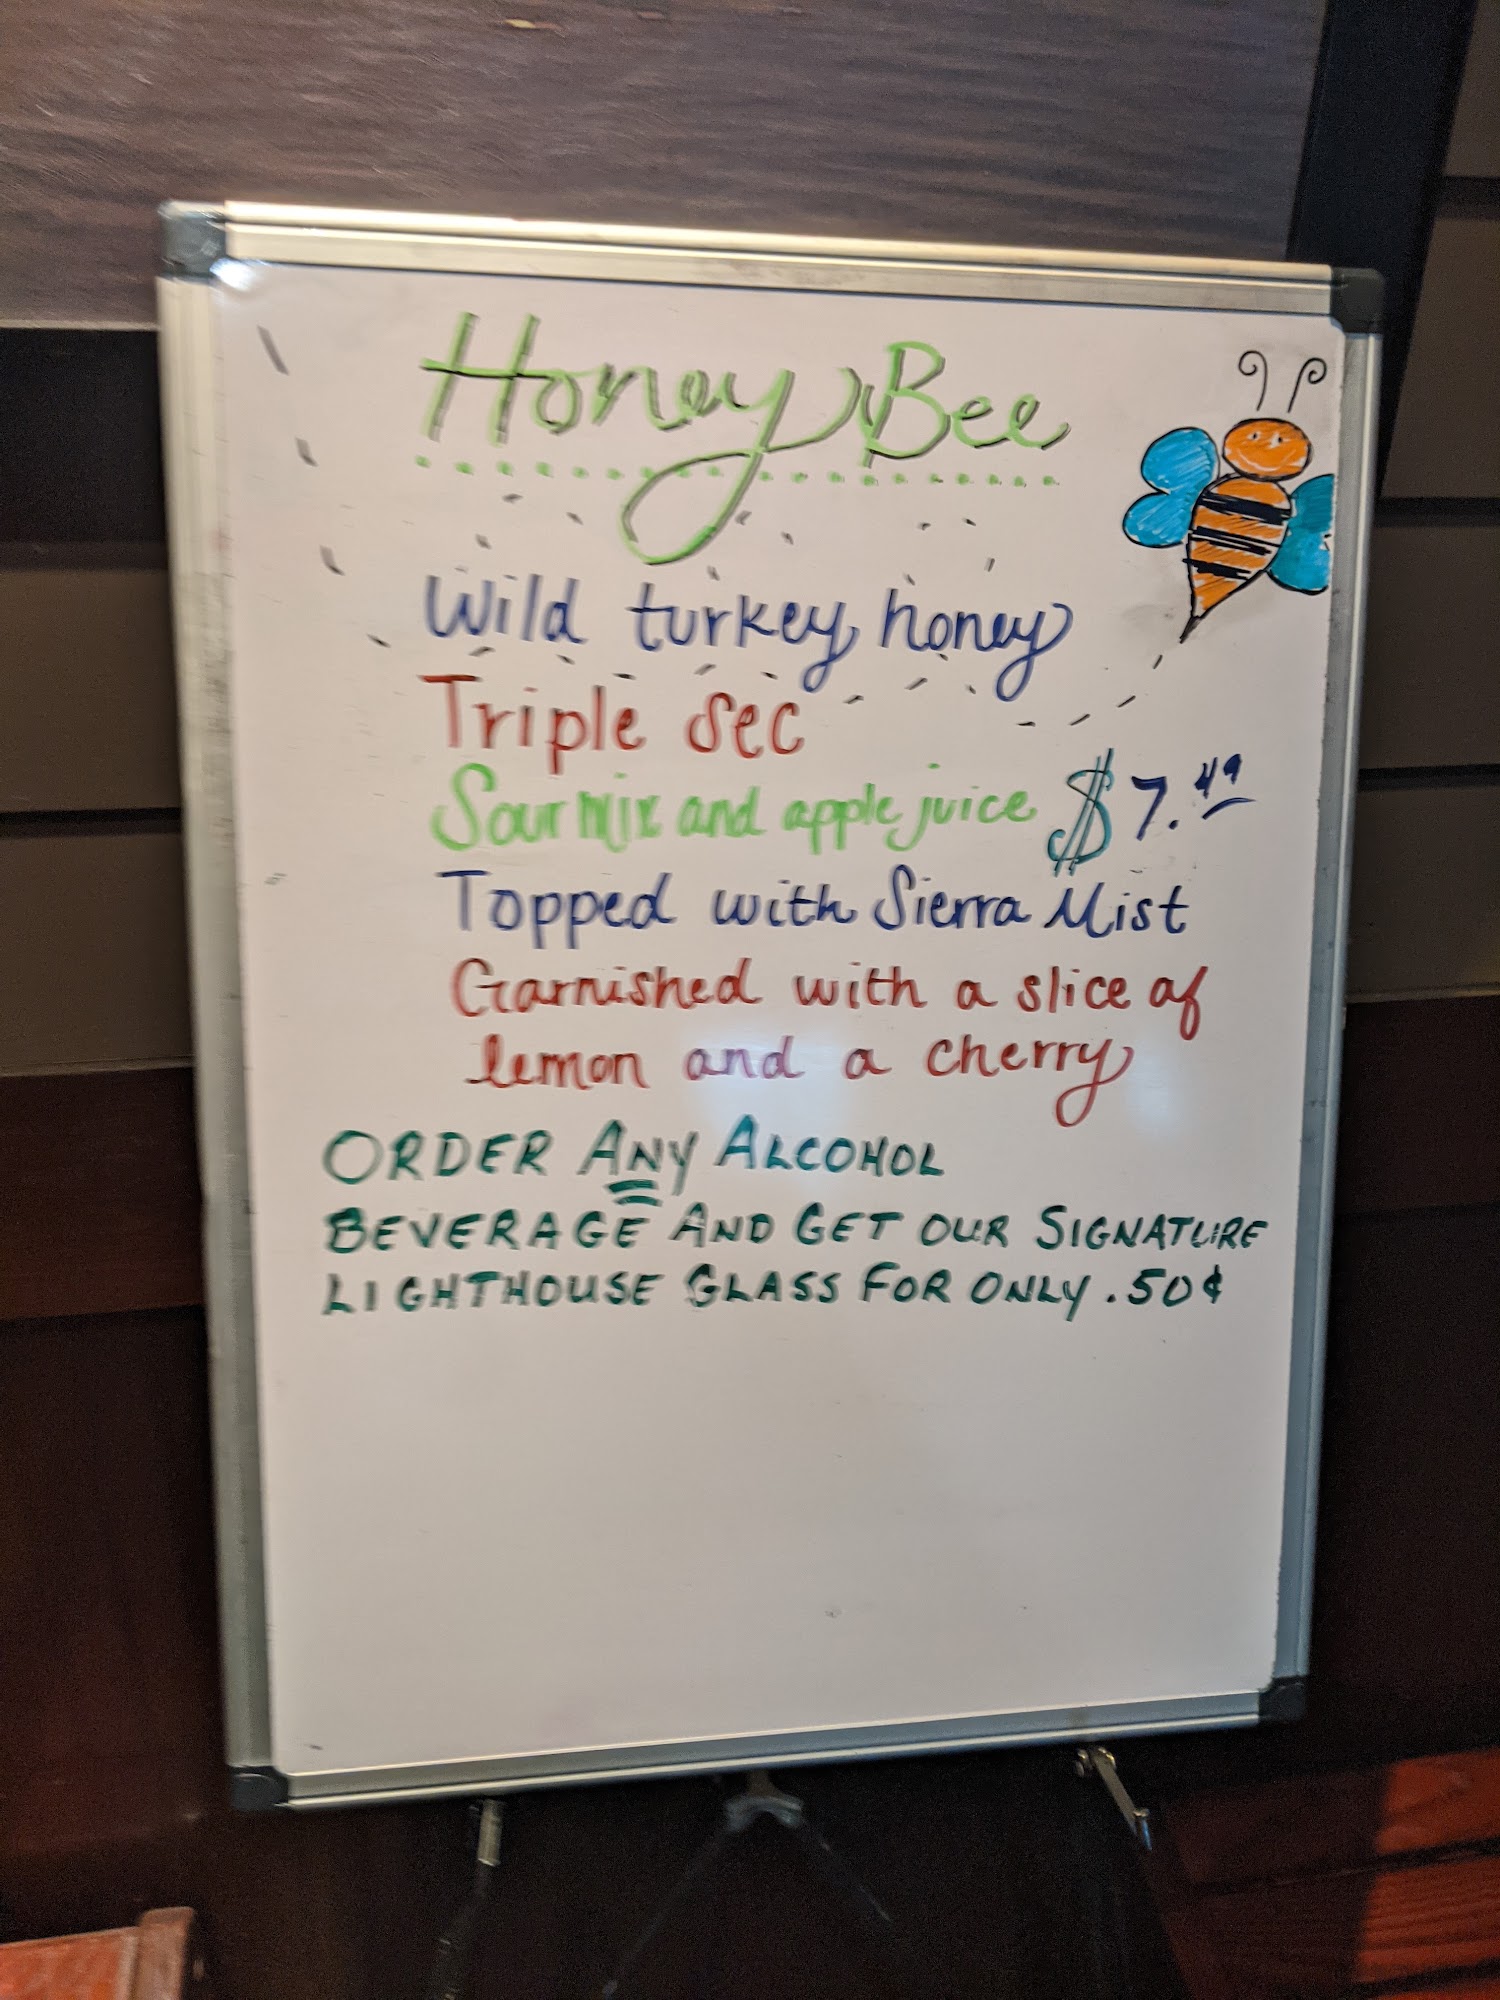 Honey Bee
Wild turkey honey
Triple Sec
Sour mix and apple juice $7.49
Topped with Sierra Mist
Garnished with a slice of
lemon and a cherry
ORDER ANY ALCOHOL
BEVERAGE AND GET OUR SIGNATURE
LIGHTHOUSE GLASS FOR ONLY .50¢